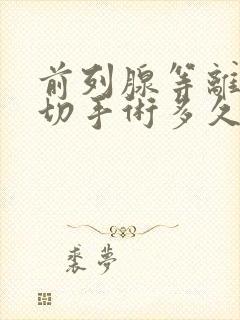 前列腺等離
切手術多久
裘夢